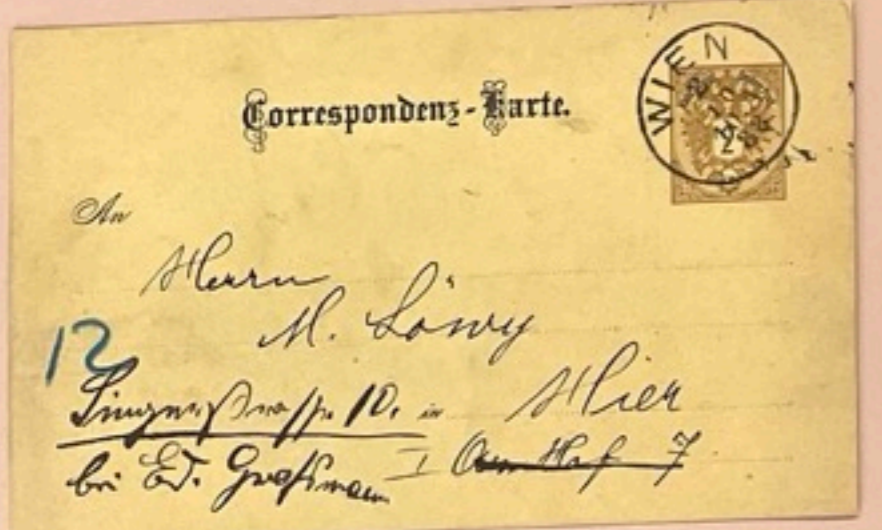 Correspondenz-Karte.
WIEN
An
Herrn
M. Löwy
12
Singerstrasse 10. in Hier
bei Ed. Grossmann I Am Hof 7